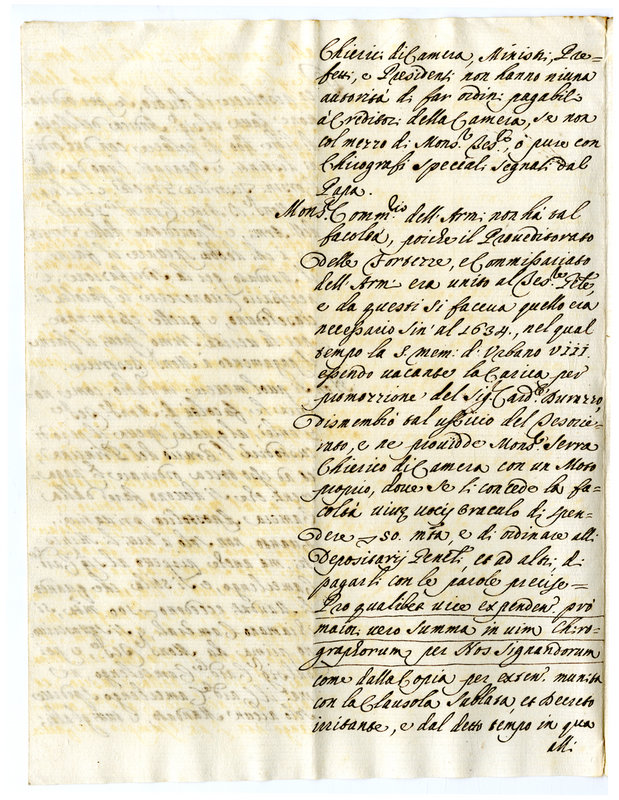 Chierici di Camera, Ministri, Pre=
fetti, e Presidenti non hanno niuna
autorità di far ordini pagabili
à Creditori della Camera, se non
col mezzo di Mons.r Tes.re, ò pure con
Chirografi speciali segnati dal
Papa.
Mons.r Comm.rio dell'Armi non hà tal
facoltà, poiche il Proveditorato
delle Fortezze, e Commissariato
dell'Armi era unito al Tes.re
e da questi si faceva quello era
necessario sin' al 1634., nel qual
tempo la S. mem: di Urbano VIII.
essendo vacante la Carica per
promozzione del Sig.r Card.le Durazzo,
dismembrò tal ufficio del Tesorie=
rato, e ne providde Mons.r Serra
Chierico di Camera con un Moto
proprio, dove se li concede la fa=
coltà vivæ vocis oraculo di spen=
dere 50. mta, e di ordinare alli
Depositarij et ad altri, di
pagarli con le parole precise=
Pro qualibet vice expenden. prò
maiori vero summa in vim Chiro=
graphorum per Nos signandorum
come dalla Copia per exten. munita
con la Clausola sublata, et Decreto
irritante, e dal detto tempo in qua
alli